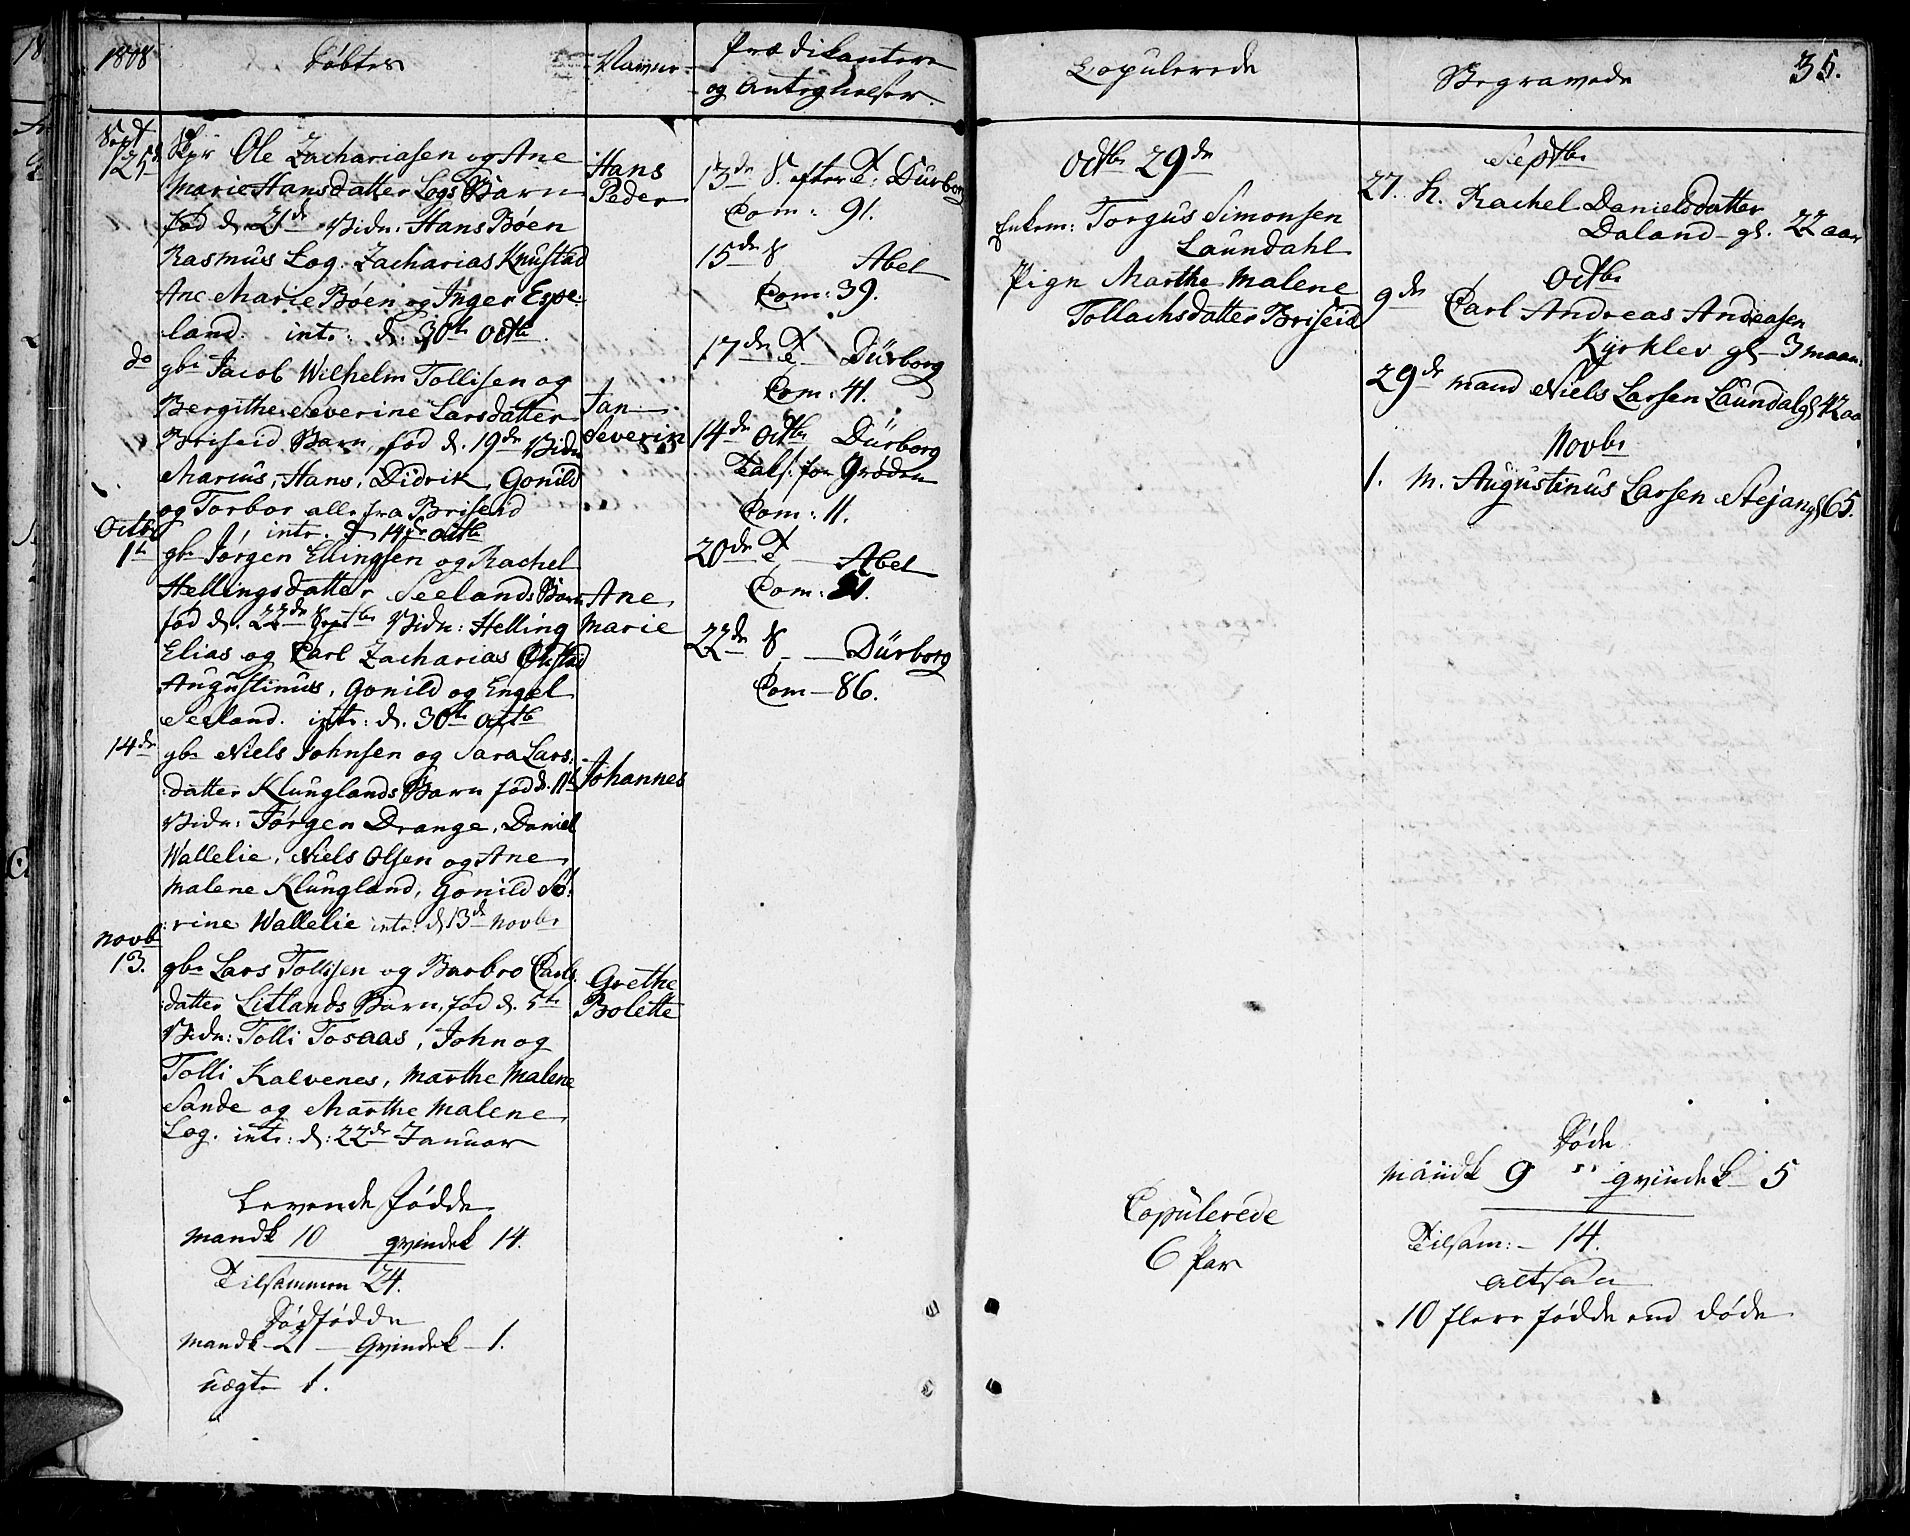 1808 Døbte Navne Prædikantere
og Andigheder
Sept
125 Spr Ole Zachariasen og Ane
Marie Hansdatter Logs Barn
fød d. 21de Vidn: Hans Bøen
Rasmus Log. Zacharias Knustad
Ane Marie Bøen og Inger Espe-
land. intr: d: 30te Octbr
Hans
Peder
do gbr Jacob Wilhelm Tollisen og
Bergithe Severine Larsdatter
Briseid Barn fød d. 19de Vidn
Marius, Hans, Didrik, Gonild
og Torbor alle fra Briseid
intr. d 14de octb
Jan
Severin
Octbr
1te gbr Jørgen Ellingsen og Rachel
Hellingsdatter Seelands Barn
fød d. 22de Septbr Vidn: Helling
Elias og Carl Zacharias
Augustinus, Gonild og Engel
Seeland. intr: d. 30te Octb
Ane
Marie
14de gbr Niels Johnsen og Sara Lars:
datter Klunglands Barn fød d. 11te
Vidn: Jørgen Drange, Daniel
Wallelie, Niels Olsen og Ane
Malene Klungland, Gonild Sø:
:rine Wallelie intr: d 13de Novbr
Johannes
Novb
13. gbr Lars Tollisen og Barbro Carls:
datter Litlands Barn, fød d. 5te
Vidn: Tolli Tosaas, John og
Tolli Kalvenes, Marthe Malene
Sande og Marthe Malene
Log. intr: d: 22de Januar
Grethe
Bolette
Levende fødde
Mandk 10 qvindek 14.
Tilsammen 24.
Dødfødde
Mandk 2 — Qvindek — 1.
uægte 1.
13de S. efter T: Dürborg
Com: 91.
15de S Abel
Com: 39.
17de T Dürborg
Com: 41.
14de Octbr Dürborg
Taks. for Grøden
Com: 11.
20de T — Abel
Com: 21.
22de S — Dürborg
Com — 86.
Copulerede
Octbr 29de
Enkem: Torgus Simonsen
Laundahl
Pign Marthe Malene
Tollachsdatter Briseid
Copulerede
6 Par
Begravede 35.
Septbr
27. K. Rachel Danielsdatter
Daland — gl. 22 aar
Octbr
9de Carl Andreas Andeasen
Kyrklev gl — 3 maan:
29de mand Niels Larsen Laundal gl 42 aa
Novbr
1. M. Augustinus Larsen Stejan gl 65.
Døde
Mandk 9 " qvindek 5
Tilsam: — 14.
altsaa
10 flere fødde end døde